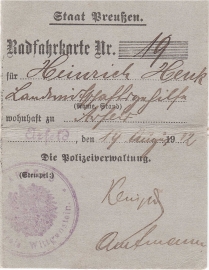 Staat Preußen.
Radfahrkarte Nr. 19
für Heinrich Henk
Landwirtschaftsgehilfe
(Name, Stand)
wohnhaft zu Arfeld
den 19 1922
Die Polizeiverwaltung.
(Stempel:)
Amtmann